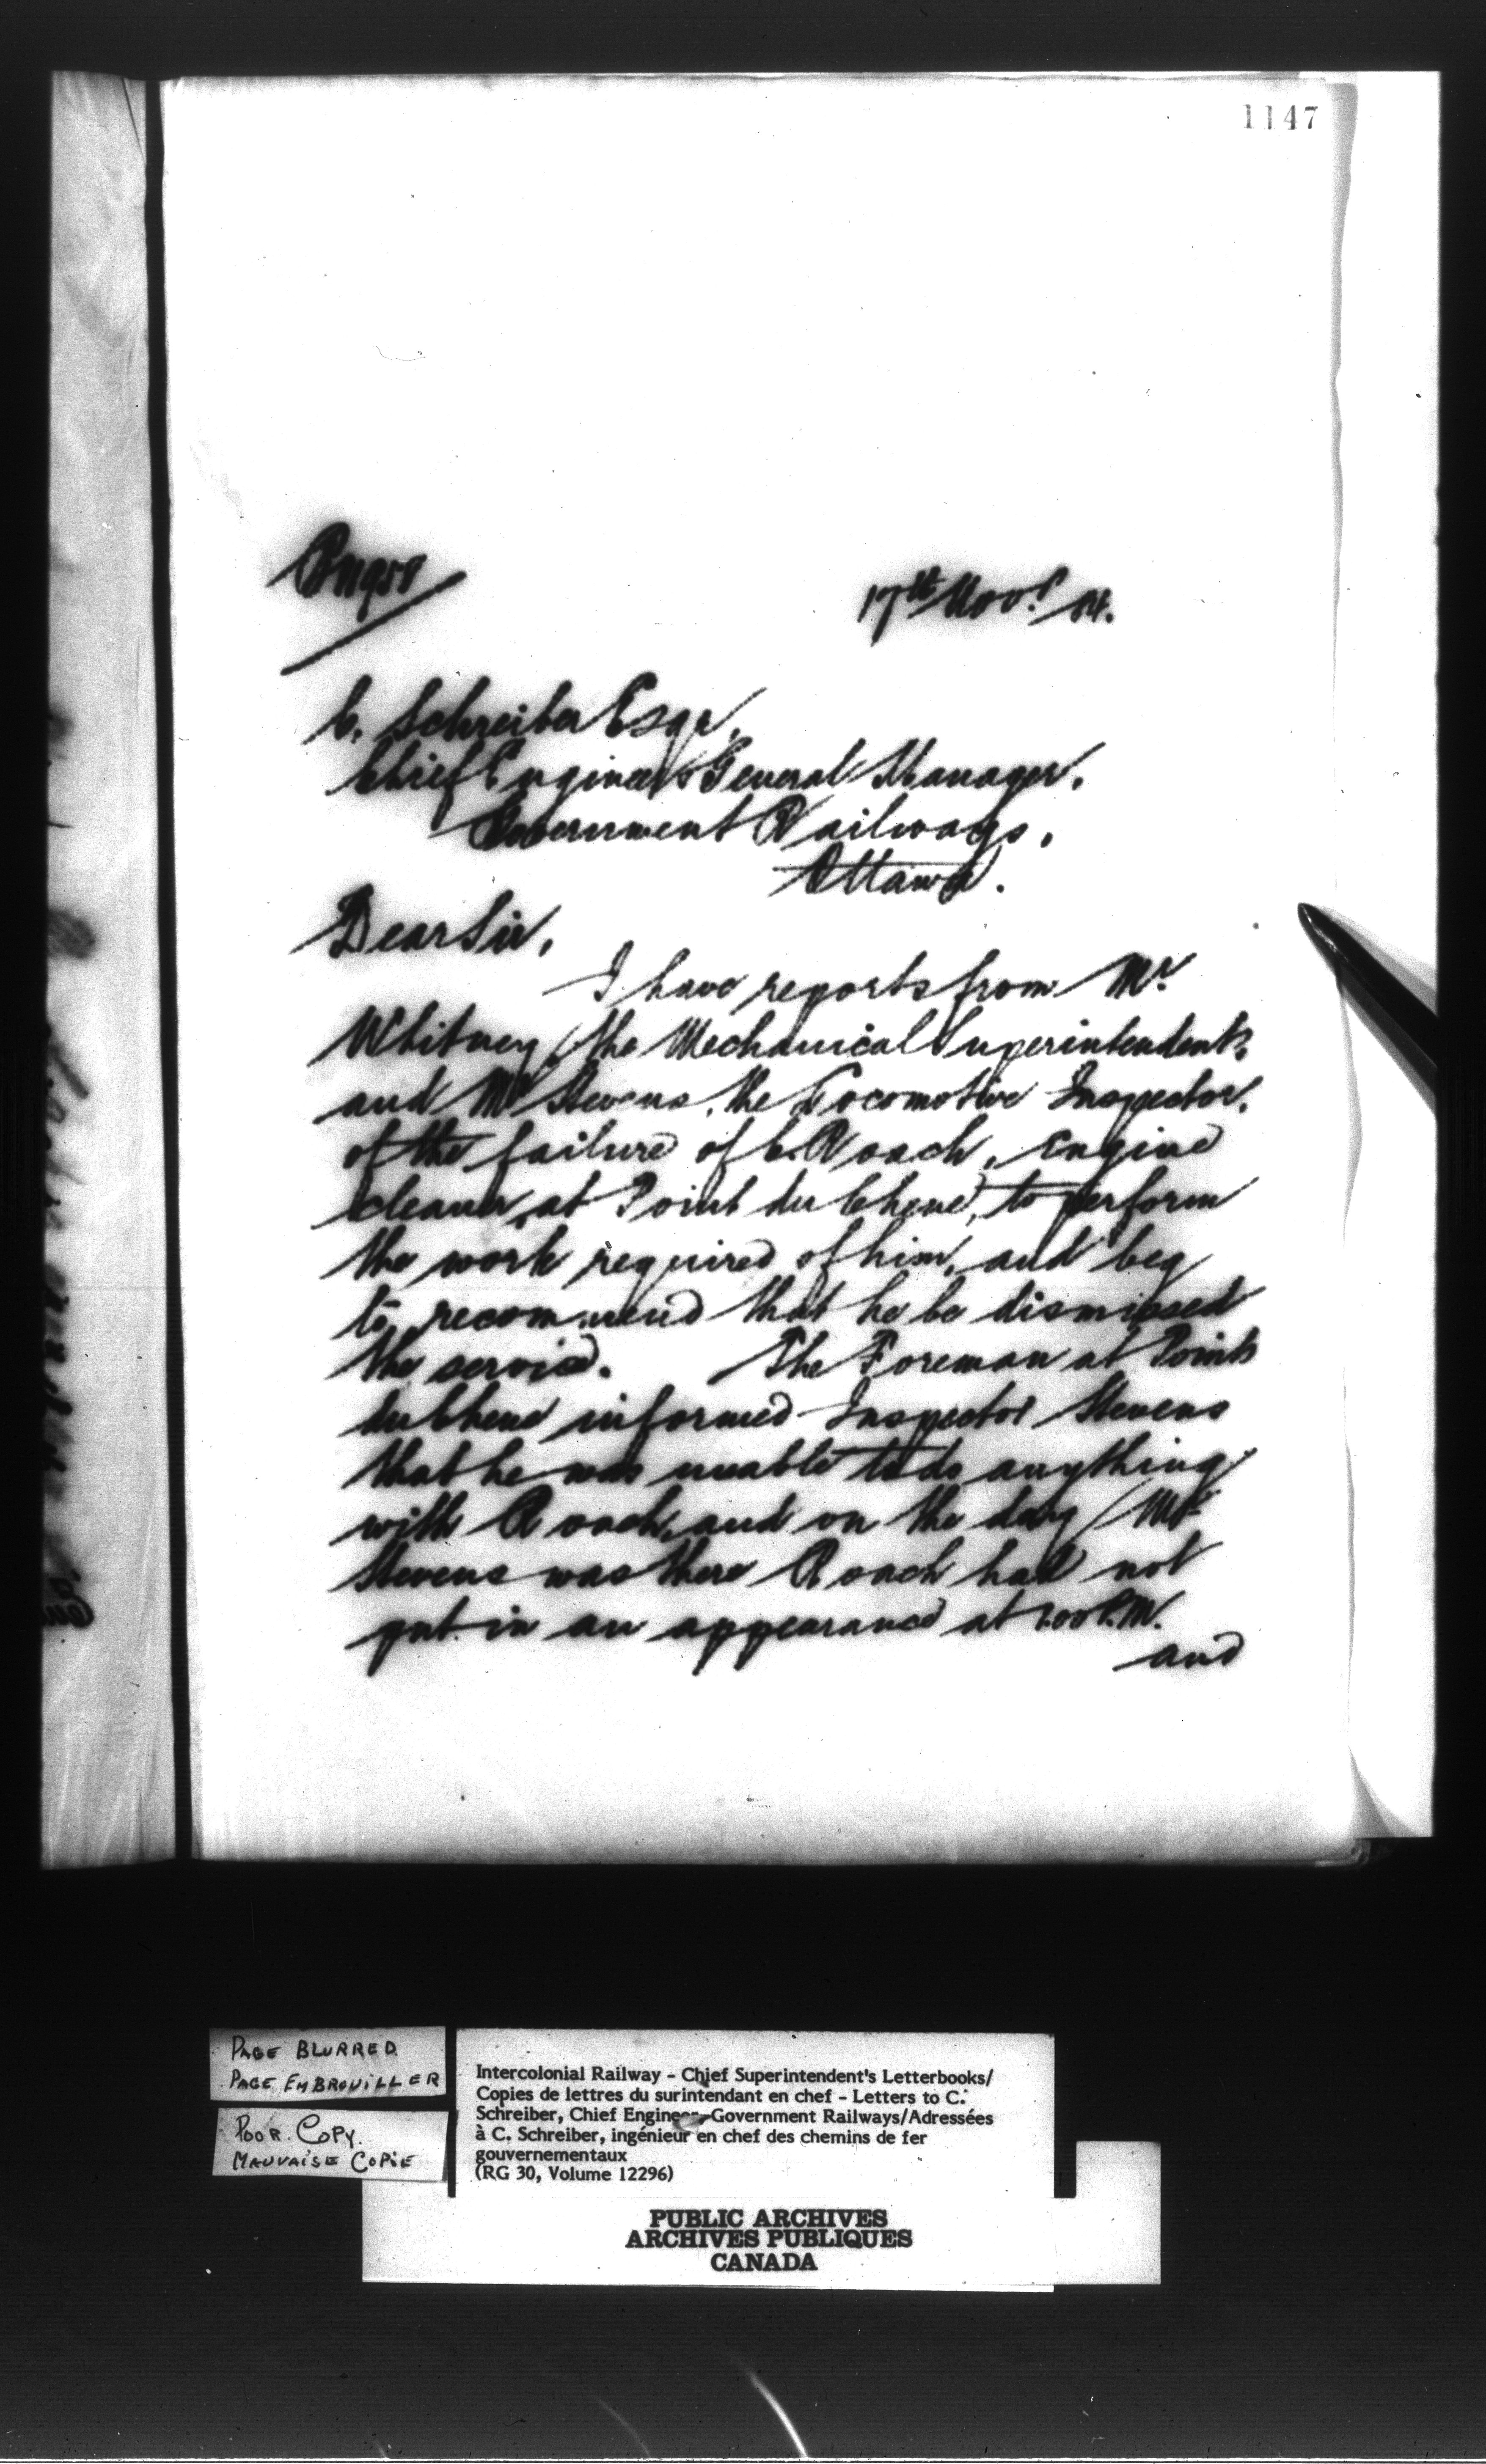 1147
17th Novr 84.
C. Schreiber Esqr,
Chief Engineer & General Manager,
Government Railways,
Ottawa.
Dear Sir,
I have reports from Mr
Whitney, the Mechanical Superintendent,
and Mr Stevens, the Locomotive Inspector,
of the failure of C. Roach, engine
cleaner, at Point du Chene, to perform
the work required of him, and beg
to recommend that he be dismissed
the service. The Foreman at Point
du Chene informed Inspector Stevens
that he was unable to do anything
with Roach, and on the day Mr
Stevens was there Roach had not
put in an appearance at 1.00 P.M.
and
PAGE BLURRED
PAGE EMBROUILLER
POOR COPY.
MAUVAISE COPIE
Intercolonial Railway - Chief Superintendent's Letterbooks/
Copies de lettres du surintendant en chef - Letters to C.
Schreiber, Chief Engineer, Government Railways/Adressées
à C. Schreiber, ingénieur en chef des chemins de fer
gouvernementaux
(RG 30, Volume 12296)
PUBLIC ARCHIVES
ARCHIVES PUBLIQUES
CANADA